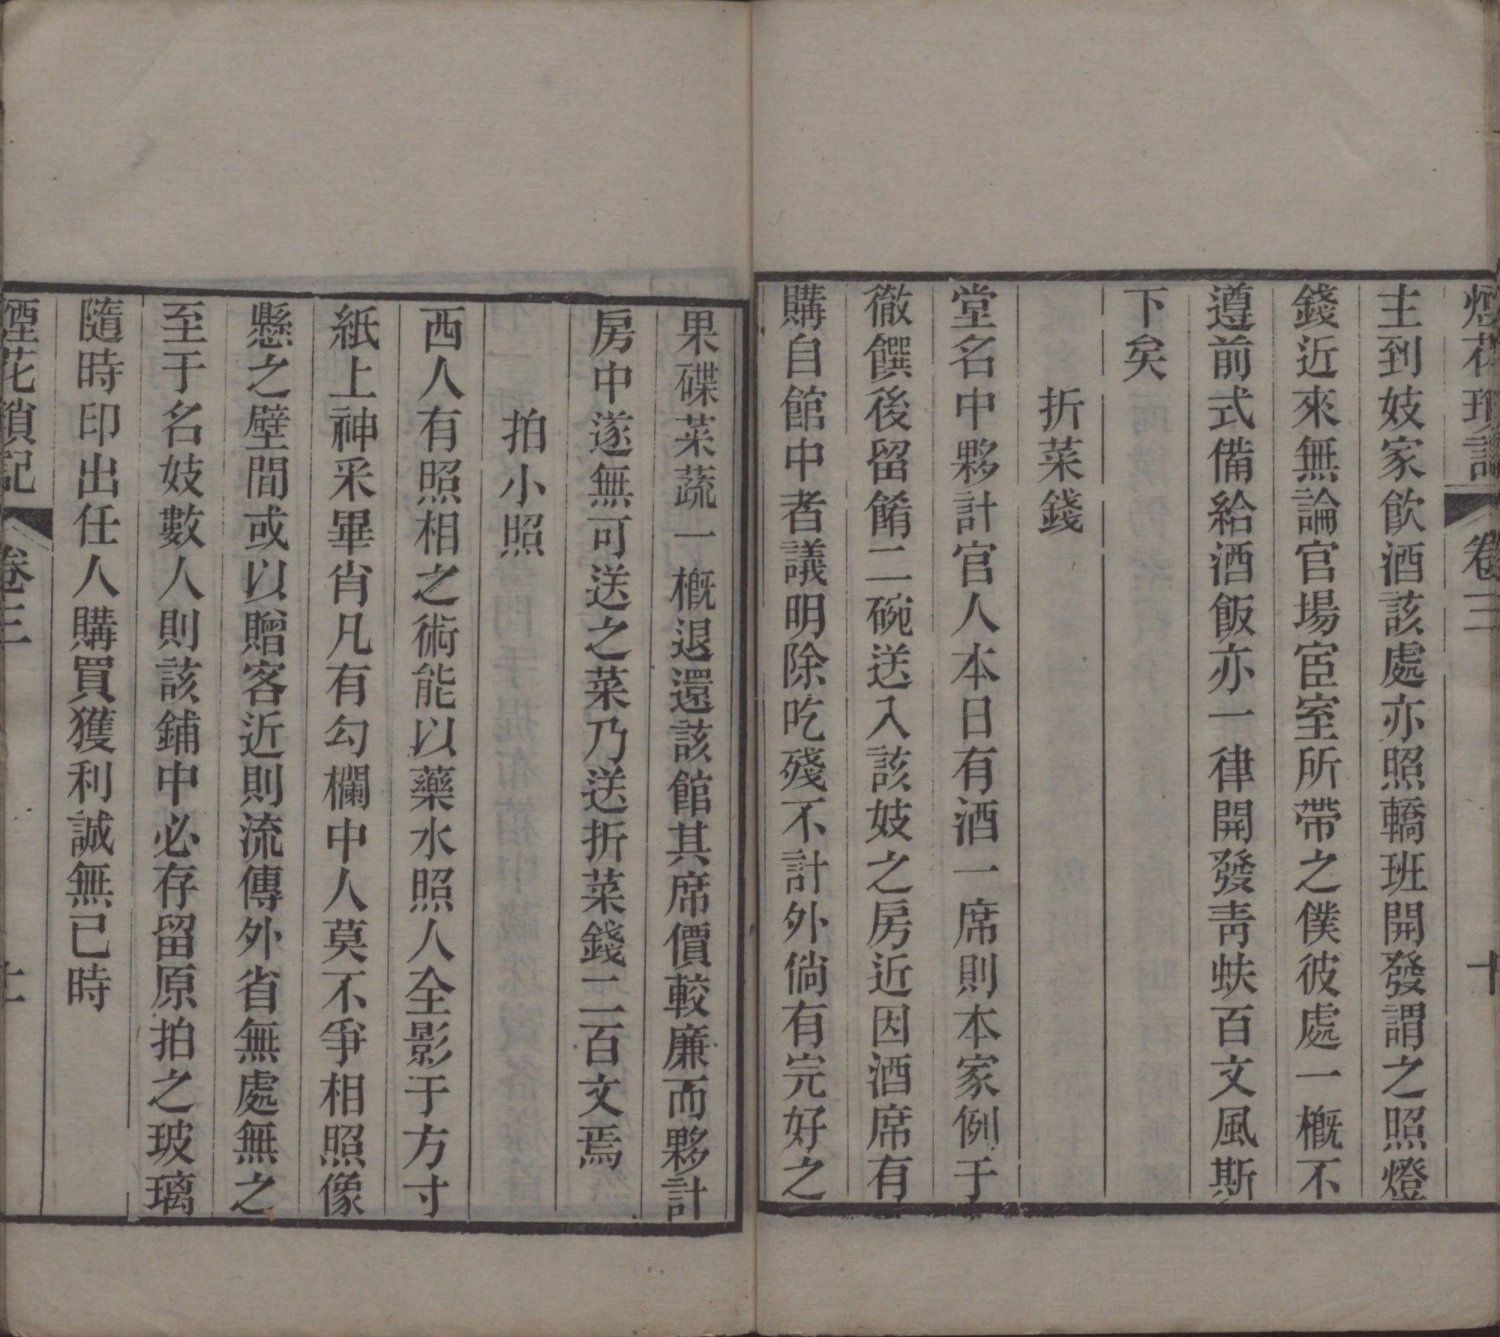 煙花瑣記 卷三 十
主到妓家飲酒該處亦照轎班開發謂之照燈
錢近來無論官場宦室所帶之僕彼處一概不
遵前式備給酒飯亦一律開發青蚨百文風斯
下矣
折菜錢
堂名中夥計官人本日有酒一席則本家例于
徹饌後留餚二碗送入該妓之房近因酒席有
購自館中者議明除吃殘不計外倘有完好之
果碟菜蔬一概退還該館其席價較廉而夥計
房中遂無可送之菜乃送折菜錢二百文焉
拍小照
西人有照相之術能以藥水照人全影于方寸
紙上神釆畢肖凡有勾欄中人莫不爭相照像
懸之壁間或以贈客近則流傳外省無處無之
至于名妓數人則該鋪中必存留原拍之玻璃
隨時印出任人購買獲利誠無已時
煙花瑣記 卷三